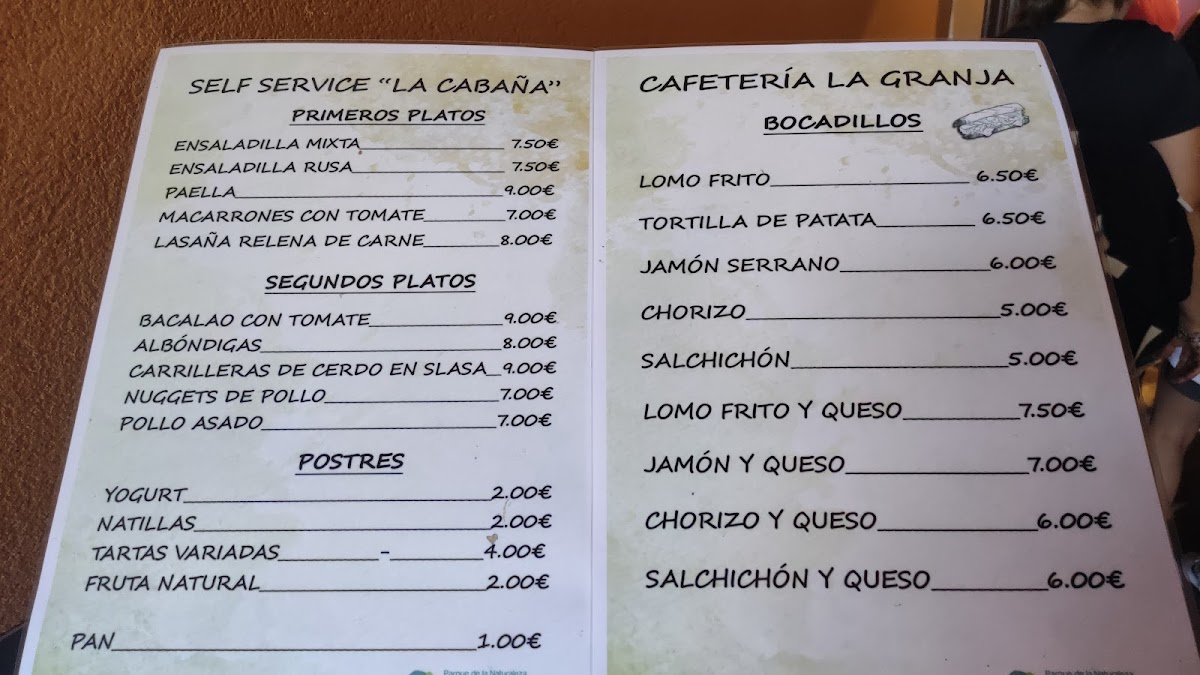 SELF SERVICE “LA CABAÑA”
PRIMEROS PLATOS
ENSALADILLA MIXTA 7.50€
ENSALADILLA RUSA 7.50€
PAELLA 9.00€
MACARRONES CON TOMATE 7.00€
LASAÑA RELENA DE CARNE 8.00€
SEGUNDOS PLATOS
BACALAO CON TOMATE 9.00€
ALBÓNDIGAS 8.00€
CARRILLERAS DE CERDO EN SLASA 9.00€
NUGGETS DE POLLO 7.00€
POLLO ASADO 7.00€
POSTRES
YOGURT 2.00€
NATILLAS 2.00€
TARTAS VARIADAS - 4.00€
FRUTA NATURAL 2.00€
PAN 1.00€
Parque de la Naturaleza
CAFETERÍA LA GRANJA
BOCADILLOS
LOMO FRITO 6.50€
TORTILLA DE PATATA 6.50€
JAMÓN SERRANO 6.00€
CHORIZO 5.00€
SALCHICHÓN 5.00€
LOMO FRITO Y QUESO 7.50€
JAMÓN Y QUESO 7.00€
CHORIZO Y QUESO 6.00€
SALCHICHÓN Y QUESO 6.00€
Parque de la Naturaleza